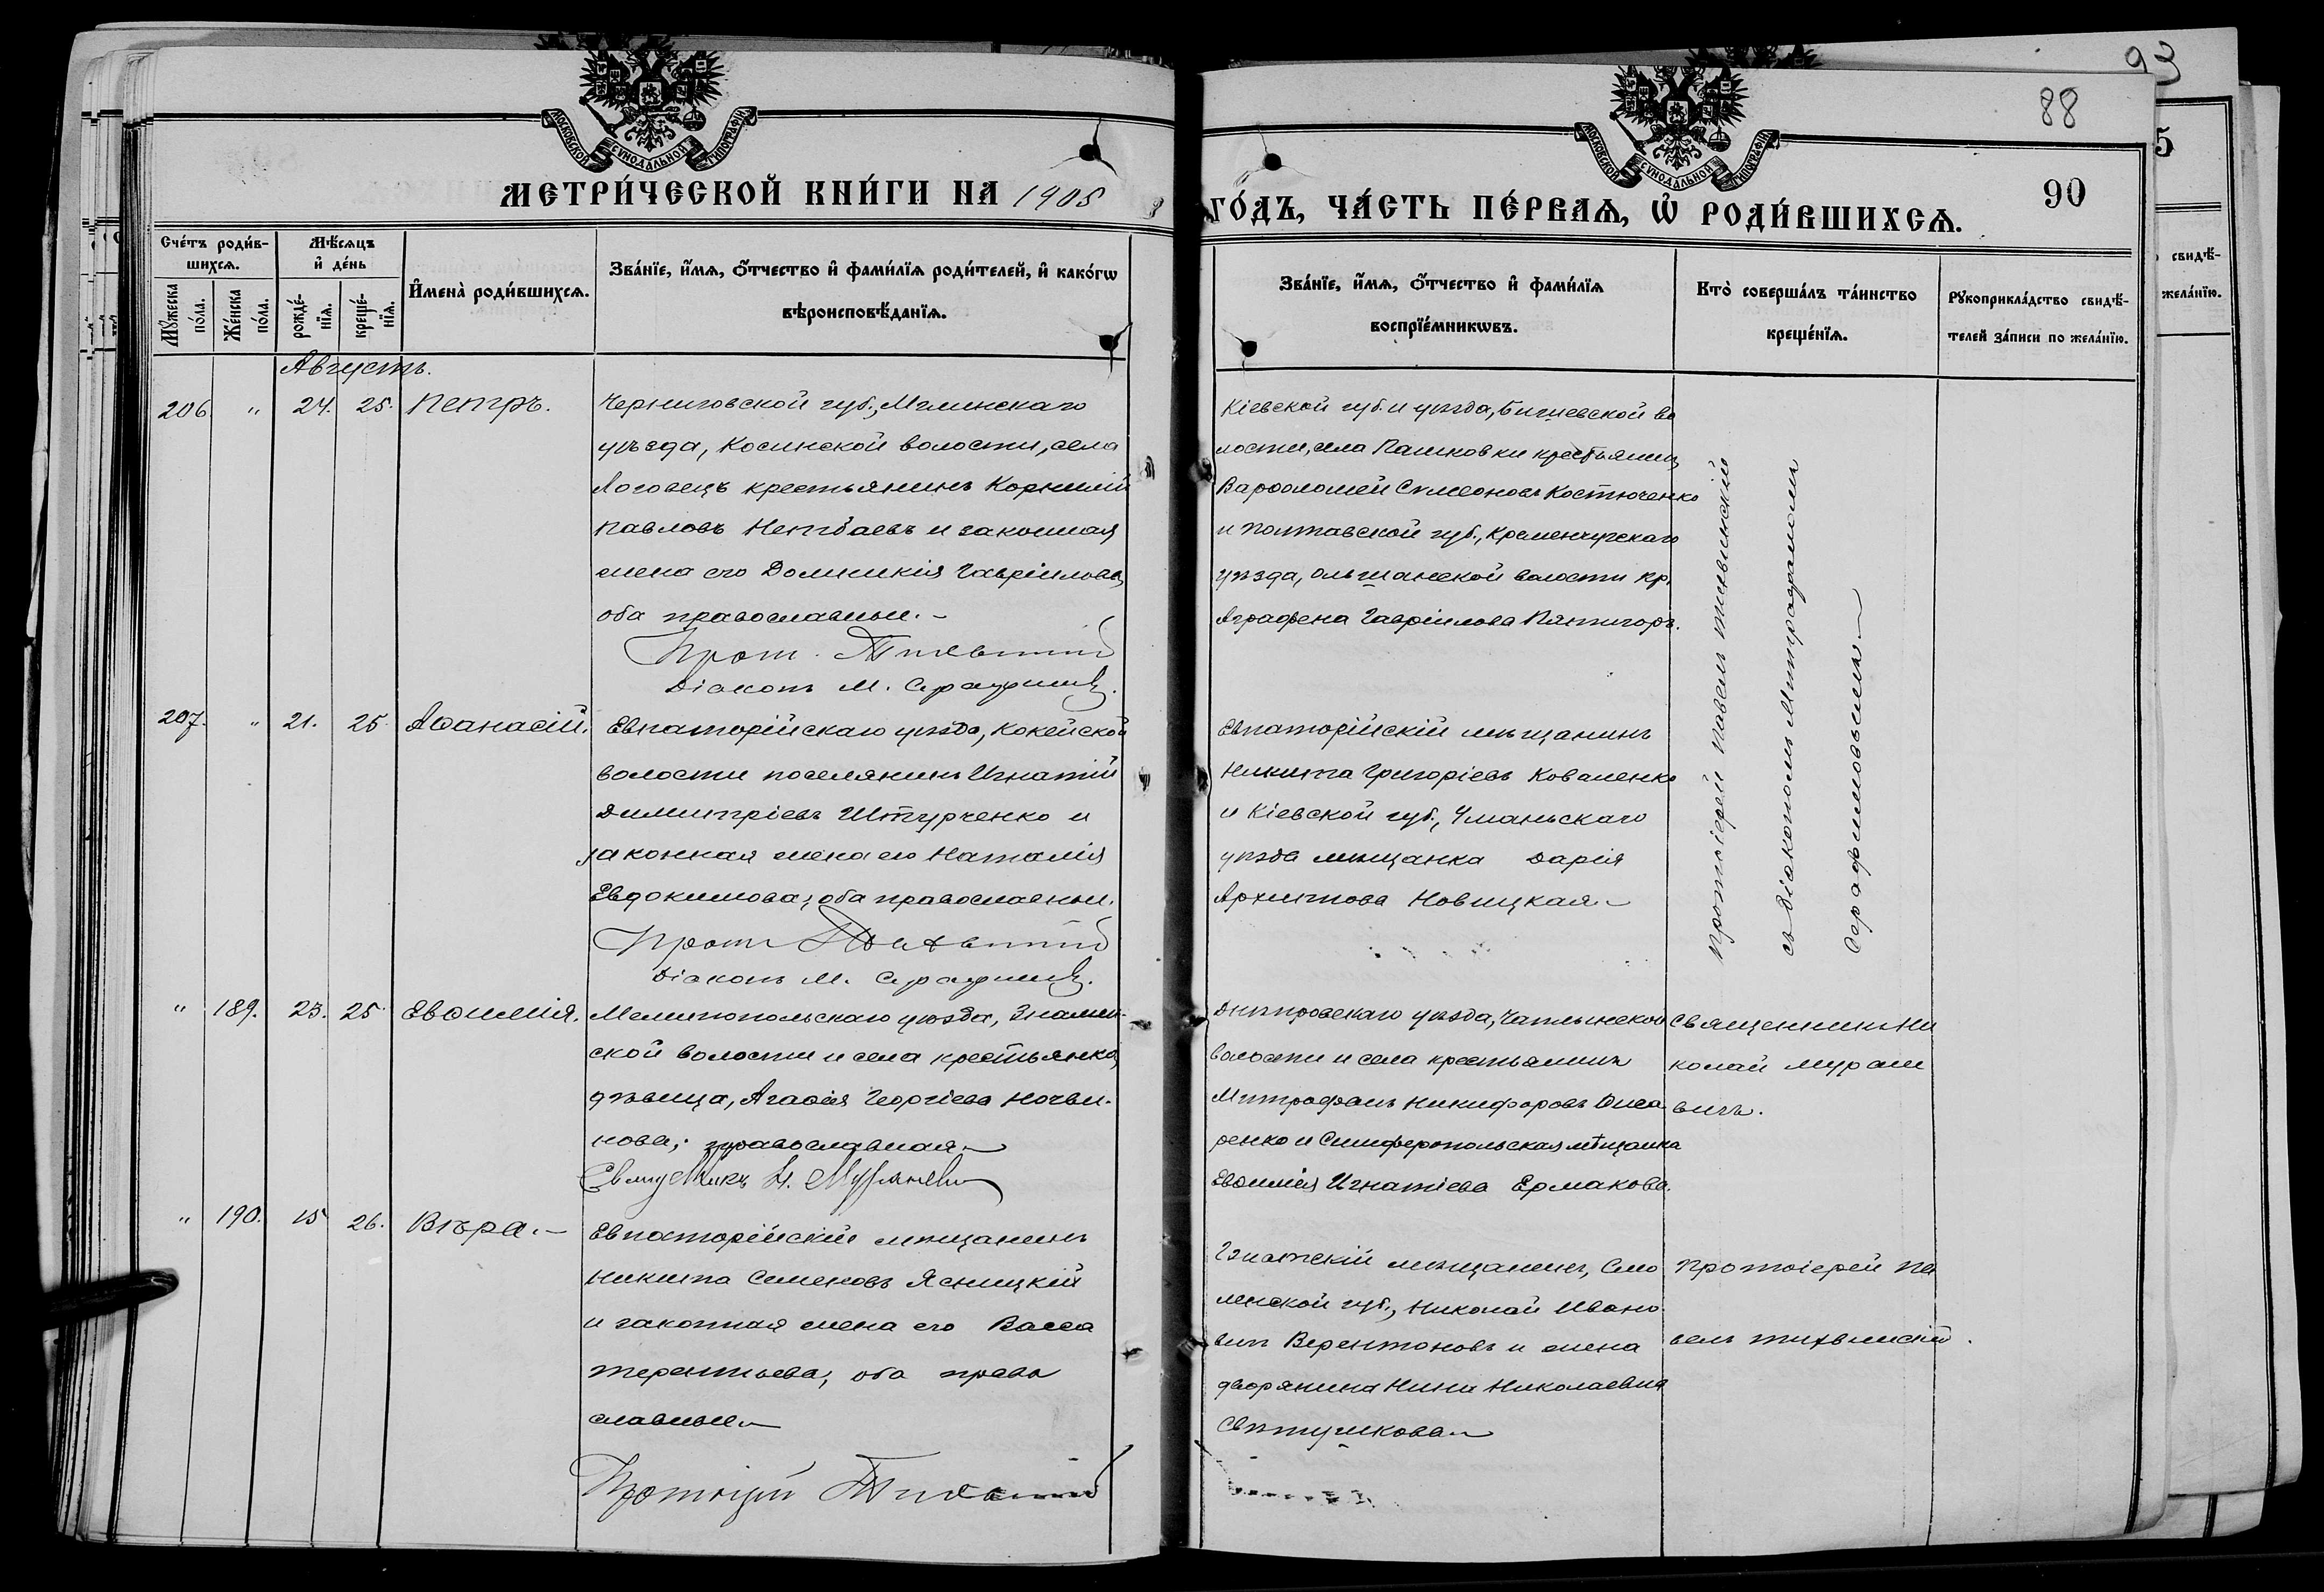 93
88
5
90
МОСКОВСКОЙ СѴНОДАЛЬНОЙ ТИПОГРАФІИ
МОСКОВСКОЙ СѴНОДАЛЬНОЙ ТИПОГРАФІИ
МЕТРИ́ЧЕСКОЙ КНИ́ГИ НА 1908
ГО́ДЪ, ЧА́СТЬ ПЕ́РВАѦ, Ѽ РОДИ́ВШИХСѦ.
Сче́тъ роди́в-
шихсѧ.
Мꙋ́жеска по́ла.
Же́нска по́ла.
Мѣ́сѧцъ и҆ де́нь
рожде́-нїѧ.
креще́-нїѧ.
И҆мена̀ роди́вшихсѧ.
Зва́нїе, и҆́мѧ, ѻ҆́тчество и҆ фами́лїѧ роди́телей, и҆ како́гѡ
вѣроисповѣ́данїѧ.
Зва́нїе, и҆́мѧ, ѻ҆́тчество и҆ фами́лїѧ
воспрїе́мникѡвъ.
Кто̀ соверша́лъ та́инство
креще́нїѧ.
Рꙋкоприкла́дство свидѣ́-
телей за́писи по жела́нїю.
свидѣ́-
жела́нїю.
Августъ.
206. " 24. 25. Петръ.
Черниговской губ., Мглинскаго
уѣзда, Косинской волости, села
Логовецъ крестьянинъ Корнилій
Павловъ и законная
жена его Доминикія Гавріилова,
оба православные.-
Прот. Тихвинскій
Діаконъ М. Серафимовъ.
Кіевской губ. и уѣзда, Бишевской во
лости, села Пашковки крестьянинъ
Варѳоломей Симеоновъ Костюченко
и Полтавской губ., Кременчугскаго
уѣзда, Ольшанской волости кр.
Аграфена Гавріилова Пятигоръ.
Протоіерей Павелъ Тихвинскій
съ діакономъ Митрофаномъ
Серафимовымъ.-
207. " 21. 25. Аѳанасій.
Евпаторійскаго уѣзда, Кокейской
волости поселянинъ Игнатій
Димитріевъ Штурченко и
законная жена его Наталія
Евдокимова; оба православные.
Прот Тихвинскій
Діаконъ М. Серафимовъ.
Евпаторійскій мѣщанинъ
Никита Григоріевъ Коваленко
и Кіевской губ., Уманьскаго
уѣзда мѣщанка Дарія
Архипова Новицкая.-
" 189. 23. 25. Евѳимія.
Мелитопольскаго уѣзда, Знамен-
ской волости и села крестьянка,
дѣвица, Агаѳія Георгіева Ночви-
нова; православная.-
Священникъ Н. Мураневичъ
Днѣпровскаго уѣзда, Чаплинской
волости и села крестьянинъ
Митрофанъ Никифоровъ Писа
ренко и Симферопольская мѣщанка
Евѳимія Игнатіева Ермакова.
Священникъ Ни
колай Муране
вичъ.
" 190. 15 26. Вѣра.-
Евпаторійскій мѣщанинъ
Никита Семеновъ Ясницкій
и законная жена его Васса
Терентьева, оба право
славные.-
Протоіерей Тихвинскій
Гжатскій мѣщанинъ, Смо
ленской губ., Николай Ивано
вичъ и жена
дворянина Нина Николаевна
Свѣтушкова.-
Протоіерей Па
велъ Тихвинскій.